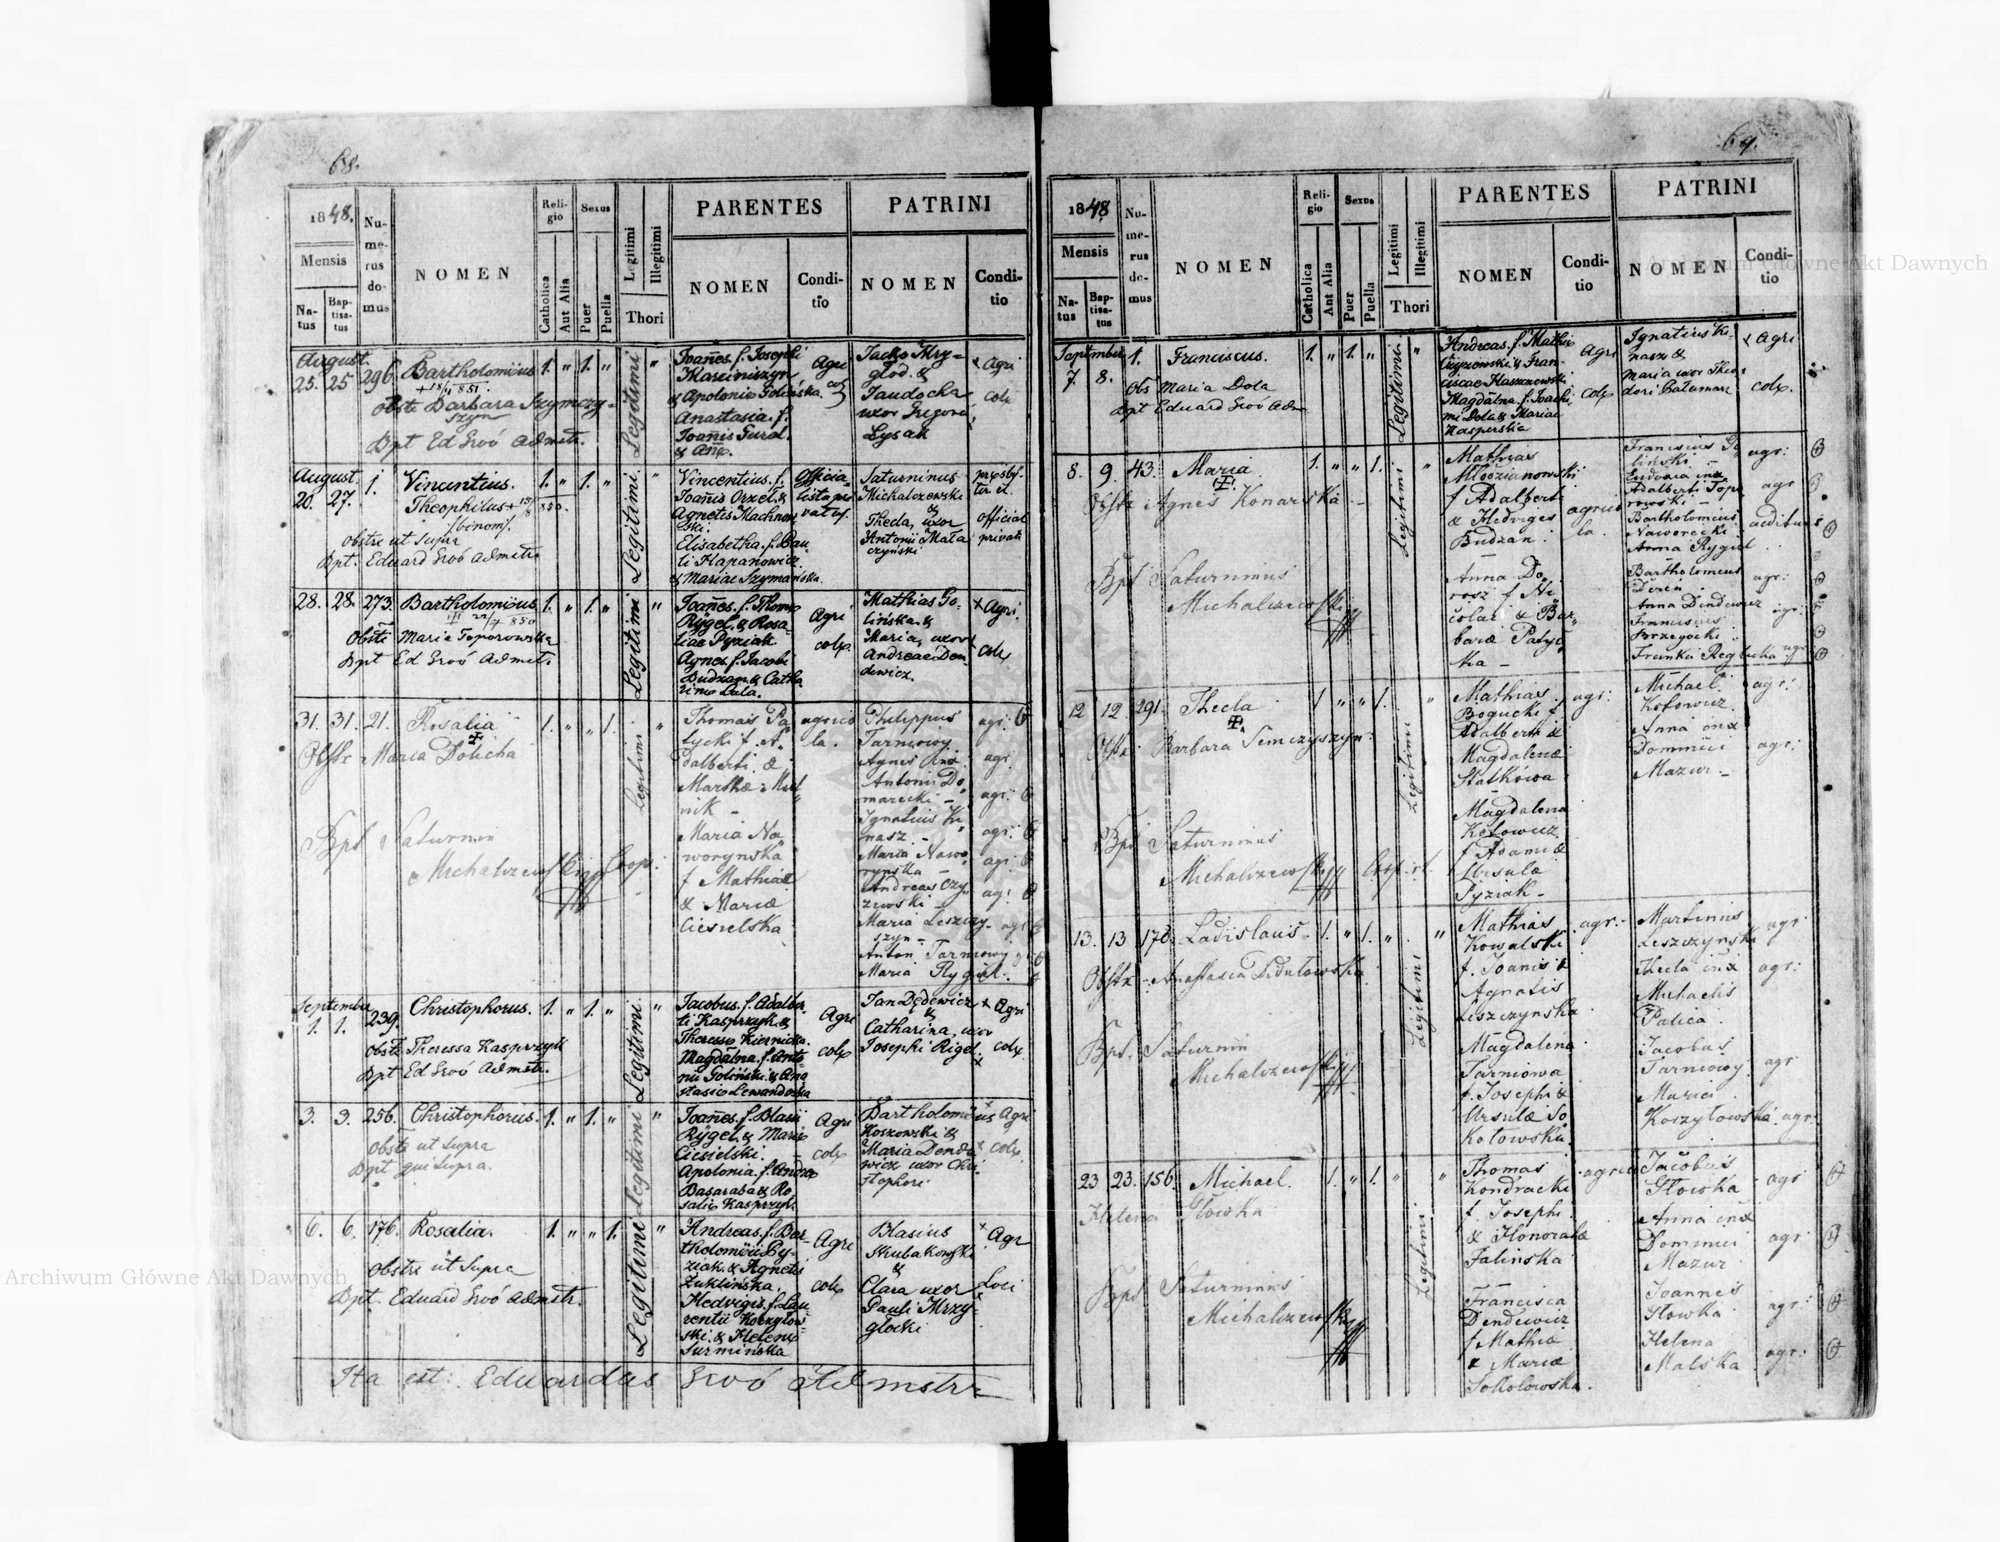 68.
1848.
Mensis
Na-
tus
Bap-
tisa-
tus
Nu-
me-
rus
do-
mus
NOMEN
Reli-
gio
Catholica
Aut Alia
Sexus
Puer
Puella
Legitimi
Illegitimi
Thori
PARENTES
NOMEN
Condi-
tio
PATRINI
NOMEN
Condi-
tio
August.
25. 25 296. Bartholomäus 1. " 1. "
Obste Barbara Szymczy-
szyn
Bpt Ed Admstr.
Legitimi "
Joañes. f. Josephi
Marciniszyn
& Apolonia Golińska.
Anastasia. f.
Joañis Gural.
& Anx.
Agri
col
Jacko Mry-
glod. &
Jaudocha
uxor Gregorii
Lysak
+ Agri
colx
August
20. 27. 1. Vincentius. 1. " 1. "
Theophilus +
/binom/.
obste ut supra
Bpt. Eduard Admstr
Legitimi. "
Vincentius. f.
Joañis Orzel. &
Agnetis Machnow
ski.
Elisabetha. f. Pau-
li Hapanowicz.
& Mariae Szymańska.
Officia-
lista pri
vatus.
Saturninus
Michalczewski
&
Thecla, uxor
Antonii Mala
czyński
presbyt.
official
privati
28. 28. 273. Bartholomäus 1. " 1. "
Obste Maria Toporowska
Bpt Ed Admstr.
Legitimi "
Joañes. f. Thomæ
Rygel. & Rosa-
liae Pyziak
Agnes. f. Jacobi
Budzan & Catha
rinæ Lala.
Agri
colx.
Mathias Go-
lińska. &
Maria, uxor
Andreae Den
dewicz.
+ Agri.
colx
31. 31. 21. Rosalia 1. " " 1.
Obstr Maria Dolicha
Bpt Saturnin
Michalczewski Coop.
Legitimi "
Thomas Pa
lycki f. A
dalberti &
Marthæ Mel
nik -
Maria Na
worynska
f Mathiæ
& Mariæ
Ciesielska
agrico
la.
Philippus
Tarnowy.
Agnes inx
Antonii Do
marecki -
Ignatius Ki
nasz -
Maria Nawo
rynska -
Andreas Czy
zewski -
Maria Leszczy
szyn -
Anton Tarnowy
Maria Rygiel.
agr:
agr:
agr:
agr:
agr:
agr:
agr
September
1. 1. 239. Christophorus. 1. " 1. "
obste Theressa Kasprzyk
Bpt Ed Admstr.
Legitimi. "
Jacobus. f. Adalber
ti Kasprzyk. &
Theressæ Kiernicka.
Magdálna. f. Anto
nii Goliński. & Ana
stasiæ Lewandoska
Agri
colx
Jan Dędewicz
&
Catharina, uxor
Josephi Rigel.
+ Agri
colx
3. 3. 256. Christophorus. 1. " 1. "
obste ut supra
Bpt qui supra.
Legitimi "
Joañes. f. Blasii
Rygel. & Mariæ
Ciesielski.
Apolonia. f. Andreæ
Basaraba & Ro-
saliæ Kasprzyk.
Agri
colx
Bartholomäus
Koszowski &
Maria Dende
wicz uxor Chri
stophori
Agri
colx
6. 6. 176. Rosalia. 1. " " 1.
obste ut supra
Bpt. Eduard Admstr.
Legitimi "
Andreas. f. Bar-
tholomäi Py-
ziak. & Agnetis
Zuklińska.
Hedvigis. f. Lau-
rentii Korzytow-
ski. & Helenæ
Surmińska
Agri
colx
Blasius
Skubakowski
&
Clara uxor
Pauli Mrzy
glocki
+ Agr
Loci
Ita est: Eduardus Admstr
69.
1848.
Mensis
Na-
tus
Bap-
tisa-
tus
Nu-
me-
rus
do-
mus
NOMEN
Reli-
gio
Catholica
Aut Alia
Sexus
Puer
Puella
Legitimi
Illegitimi
Thori
PARENTES
NOMEN
Condi-
tio
PATRINI
NOMEN
Condi-
tio
September
7. 8. 1. Franciscus. 1. " 1. "
Obs Maria Dola
Bpt Eduard Adm
Legitimi. "
Andreas. f. Mathiæ
Czyzowski & Fran-
ciscae Kaszzowski
Magdálna. f. Joachi-
mi Dola & Mariae
Kasperska
Agri
colx
Ignatius Ki-
nasz &
Maria uxor Theo-
dori Batuman
+ Agri
colx.
8. 9. 43. Maria 1. " " 1.
Obstr Agnes Konarska -
Bpt Saturninus
Michalczewski
Legitimi "
Mathias
Mlodzianowski
f Adalberti
& Hedviges
Budzan.
Anna Do
rosz f Ni
colai & Bar
baræ Patyc
ka -
agrico
la.
Francisus Go
liński -
Eudoxia inx
Adalberti Topo
rowski -
Bartholomeus
Naworecki.
Anna Rygiel
Bartholomeus
Deren -
Anna Dendewicz
Franciscus
Grzegocki -
Franka Reg
agr:
agr
aedituus
agr:
agr:
agr
12 12. 291. Thecla 1 " " 1.
Obstr: Barbara Semczyszyn:
Bpt Saturninus
Michalczewski Coop
Legitimi "
Mathias
Bogucki f
Adalberti &
Magdalenæ
Statkowa
Magdalena
Kotowicz
f Adami &
Ursulæ
Pyziak -
agr:
Michael
Kotowicz
Anna inx
Dominici
Mazur -
agr:
agr:
13. 13 176. Ladislaus - 1. " 1. "
Obstr - Anastasia Didulowska
Bpt. Saturnin
Michalczewski
Legitimi "
Mathias
Kowalski
f. Joanis &
Agnatis
Leszczynska
Magdalena
Tarniowa
f. Josephi &
Ursulæ So
kotowska.
agr:
Martinus
Leszczynski
Thecla inx
Michaelis
Palica
Jacobus
Tarniowy
Maria
Koszytowska
agr
agr:
agr
agr:
23 23. 156. Michael. 1. " 1. "
Helena Słowka
Bpt Saturninus
Michalczewski
Legitimi "
Thomas
Kondracki
f. Josephi
& Honoratæ
Falinska
Francisca
Dendewicz
f Mathiæ
& Mariæ
Sokolowska.
agrico
Jacobus
Słowka
Anna inx
Dominici
Mazur
Joannes
Słowka
Helena
Malska
agr
agr
agr:
agr:
Archiwum Główne Akt Dawnych
Archiwum Główne Akt Dawnych